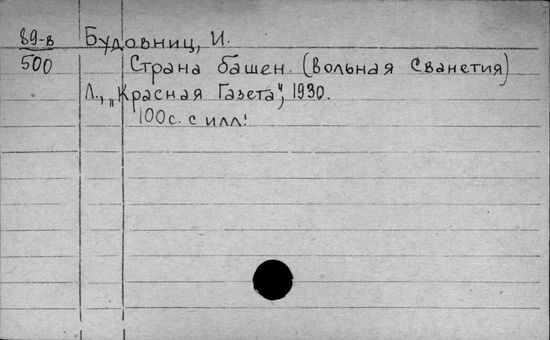 89-в Будовниц, И.
500 Страна башен. (Вольная Сванетия)
Л., „Красная Газета", 1930.
100с. с илл.